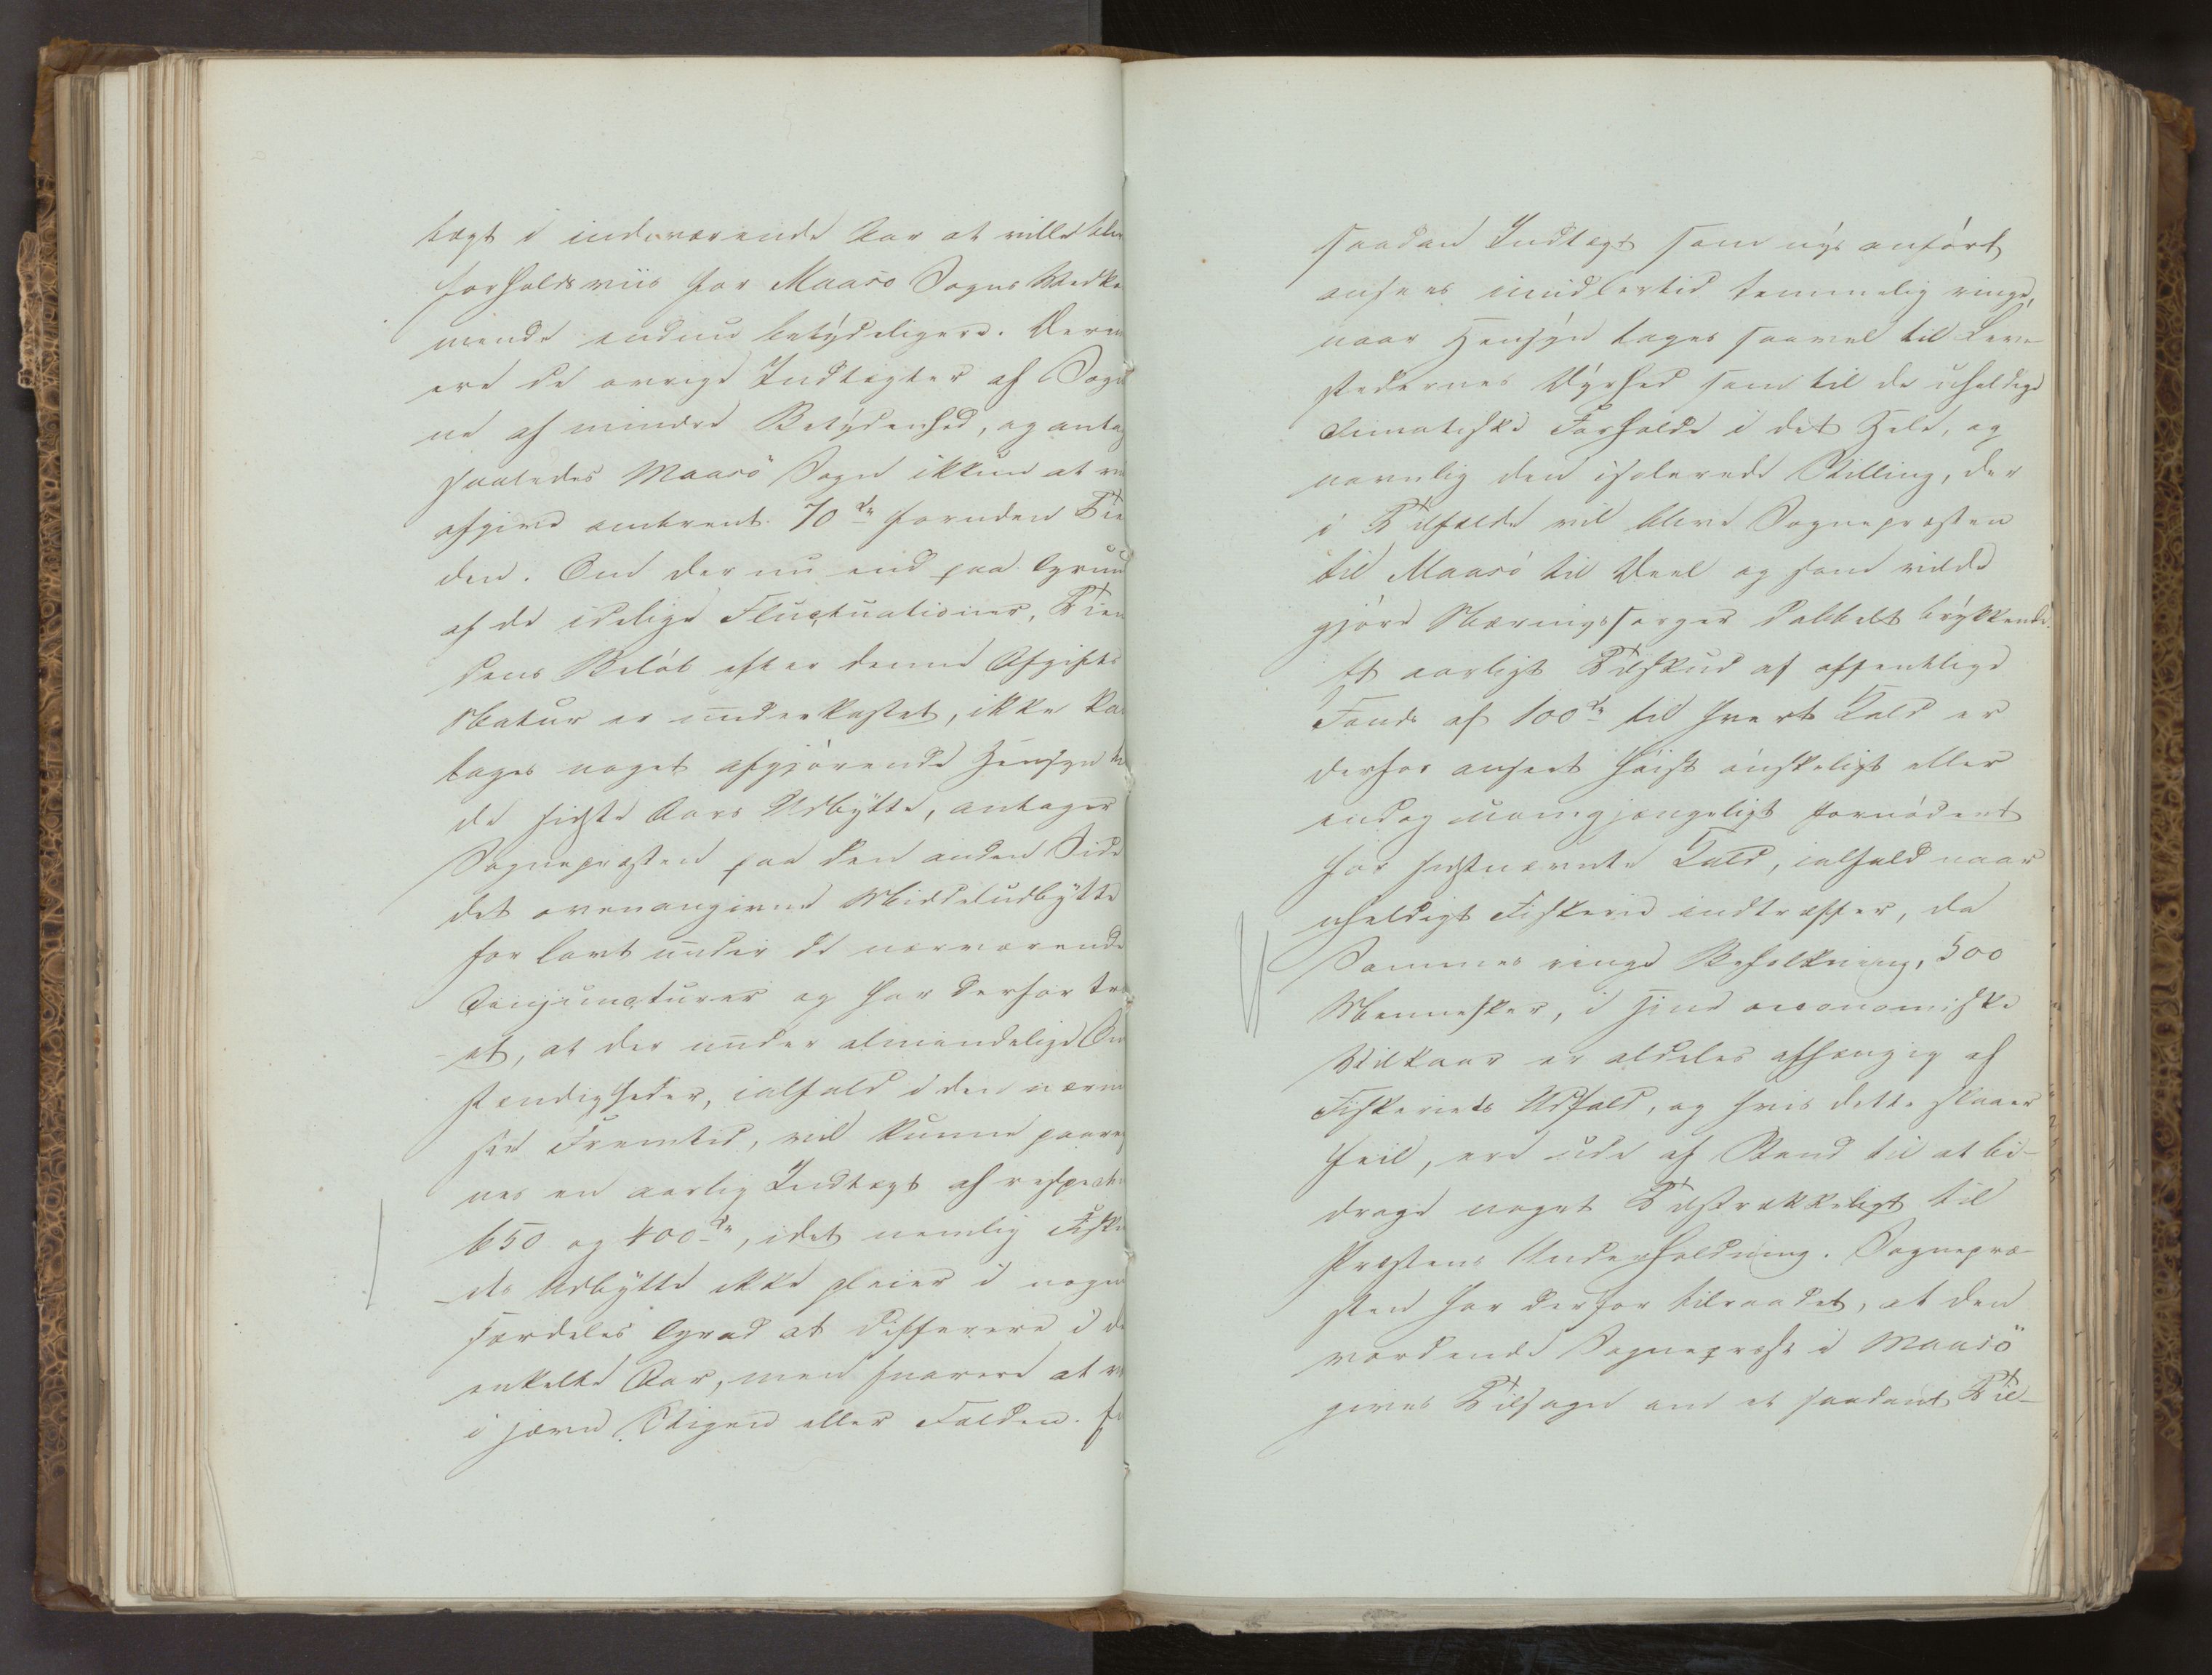 tægt i indeværende Aar at ville blive
forholdsviis for Maasø Sogns Vedkom
mende endnu betydeligere. Derim
ere de øvrige Indtægter af Sogn
ne af mindre Betydenhed, og antag
saaledes Maasö Sogn ikkun at vi
afgive omtrent 70 Sp foruden Tie
den. Om der nu end paa Grund
af de idelige Fluctuationer, Tien
dens Beløb efter denne Afgifts
Natur er underkastet, ikke kan
tages noget afgjørende Hensyn til
de sidste Aars Udbytte, antager
Sognepræsten paa den anden Side
det ovenangivne Middeludbytte
for lavt under de nærværende
Conjuncturer og har derfor tro
et, at der under almindelige Om
stændigheder, ialfald i den nærme
ste Fremtid, vil kunne paareg
nes en aarlig Indtægt af respective
650 og 400 Sp, idet nemlig Fiske
ets Udbytte ikke pleier i nogen
særdeles Grad at differere i de
enkelte Aar, men snarere at væ
i jævn Stigen eller Falden. En
saadan Indtægt som nys anført
ansees imidlertid temmelig ringe,
naar Hensyn tages saavel til Leve-
stedernes Dyrhed som til de uheldige
climatiske Forholde i det Hele, og
navnlig den isolerede Stilling, der
i Tilfælde vil blive Sognepræsten
til Maasø til Deel og som vilde
gjøre Næringssorger dobbelt trykkende.
Et aarligt Tilskud af offentlige
Fonds af 100 Sp til hvert Kald er
derfor anseet høist ønskeligt eller
endog uomgjængeligt fornødent
for sidstnævnte Kald, ialfald naar
uheldigt Fiskerie indtræffer, da
Sammes ringe Befolkning, 500
Mennesker, i sine oeconomiske
Vilkaar er aldeles afhængig af
Fiskeriets Udfald, og hvis dette slaaer
Feil, ere ude af Stand til at bi-
drage noget Tilstrækkeligt til
Præstens Underholdning. Sognepræ-
sten har derfor tilraadet, at den
vordende Sognepræst i Maasö
gives Tilsagn om et saadant Til-